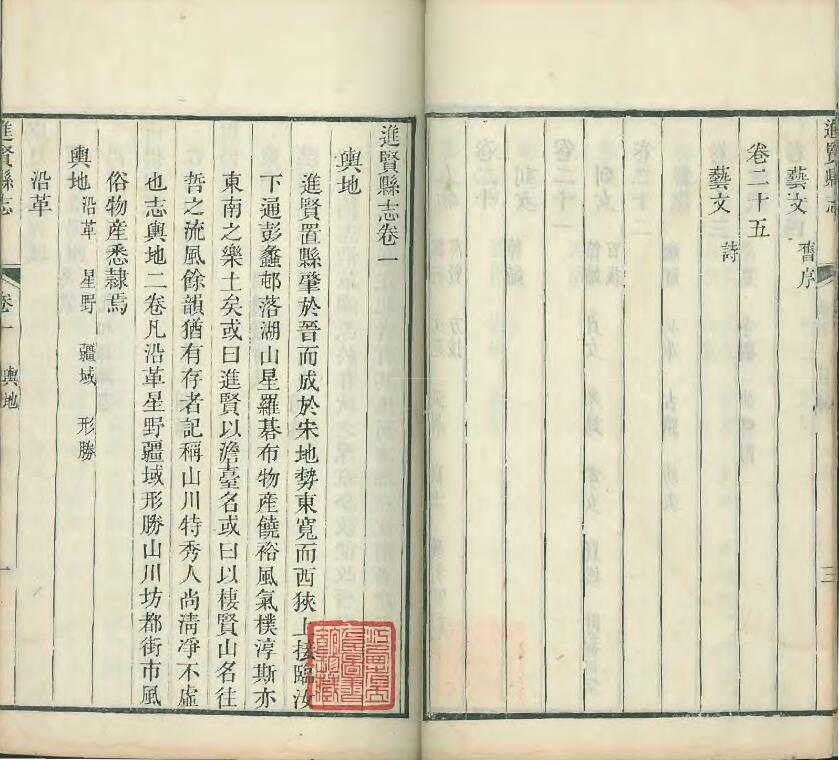 進賢縣志
三
藝文 舊序
卷二十五
藝文 詩
進賢縣志卷一
輿地
進賢置縣肇於晉而成於宋地勢東寬而西狹上接臨汝
下通彭蠡邨落湖山星羅碁布物產饒裕風氣樸淳斯亦
東南之樂土矣或曰進賢以澹臺名或曰以棲賢山名往
哲之流風餘韻猶有存者記稱山川特秀人尚淸凈不虛
也志輿地二卷凡沿革星野疆域形勝山川坊都街市風
俗物產悉隷焉
輿地 沿革 星野 疆域 形勝
沿革
進賢縣志 卷一 輿地 一